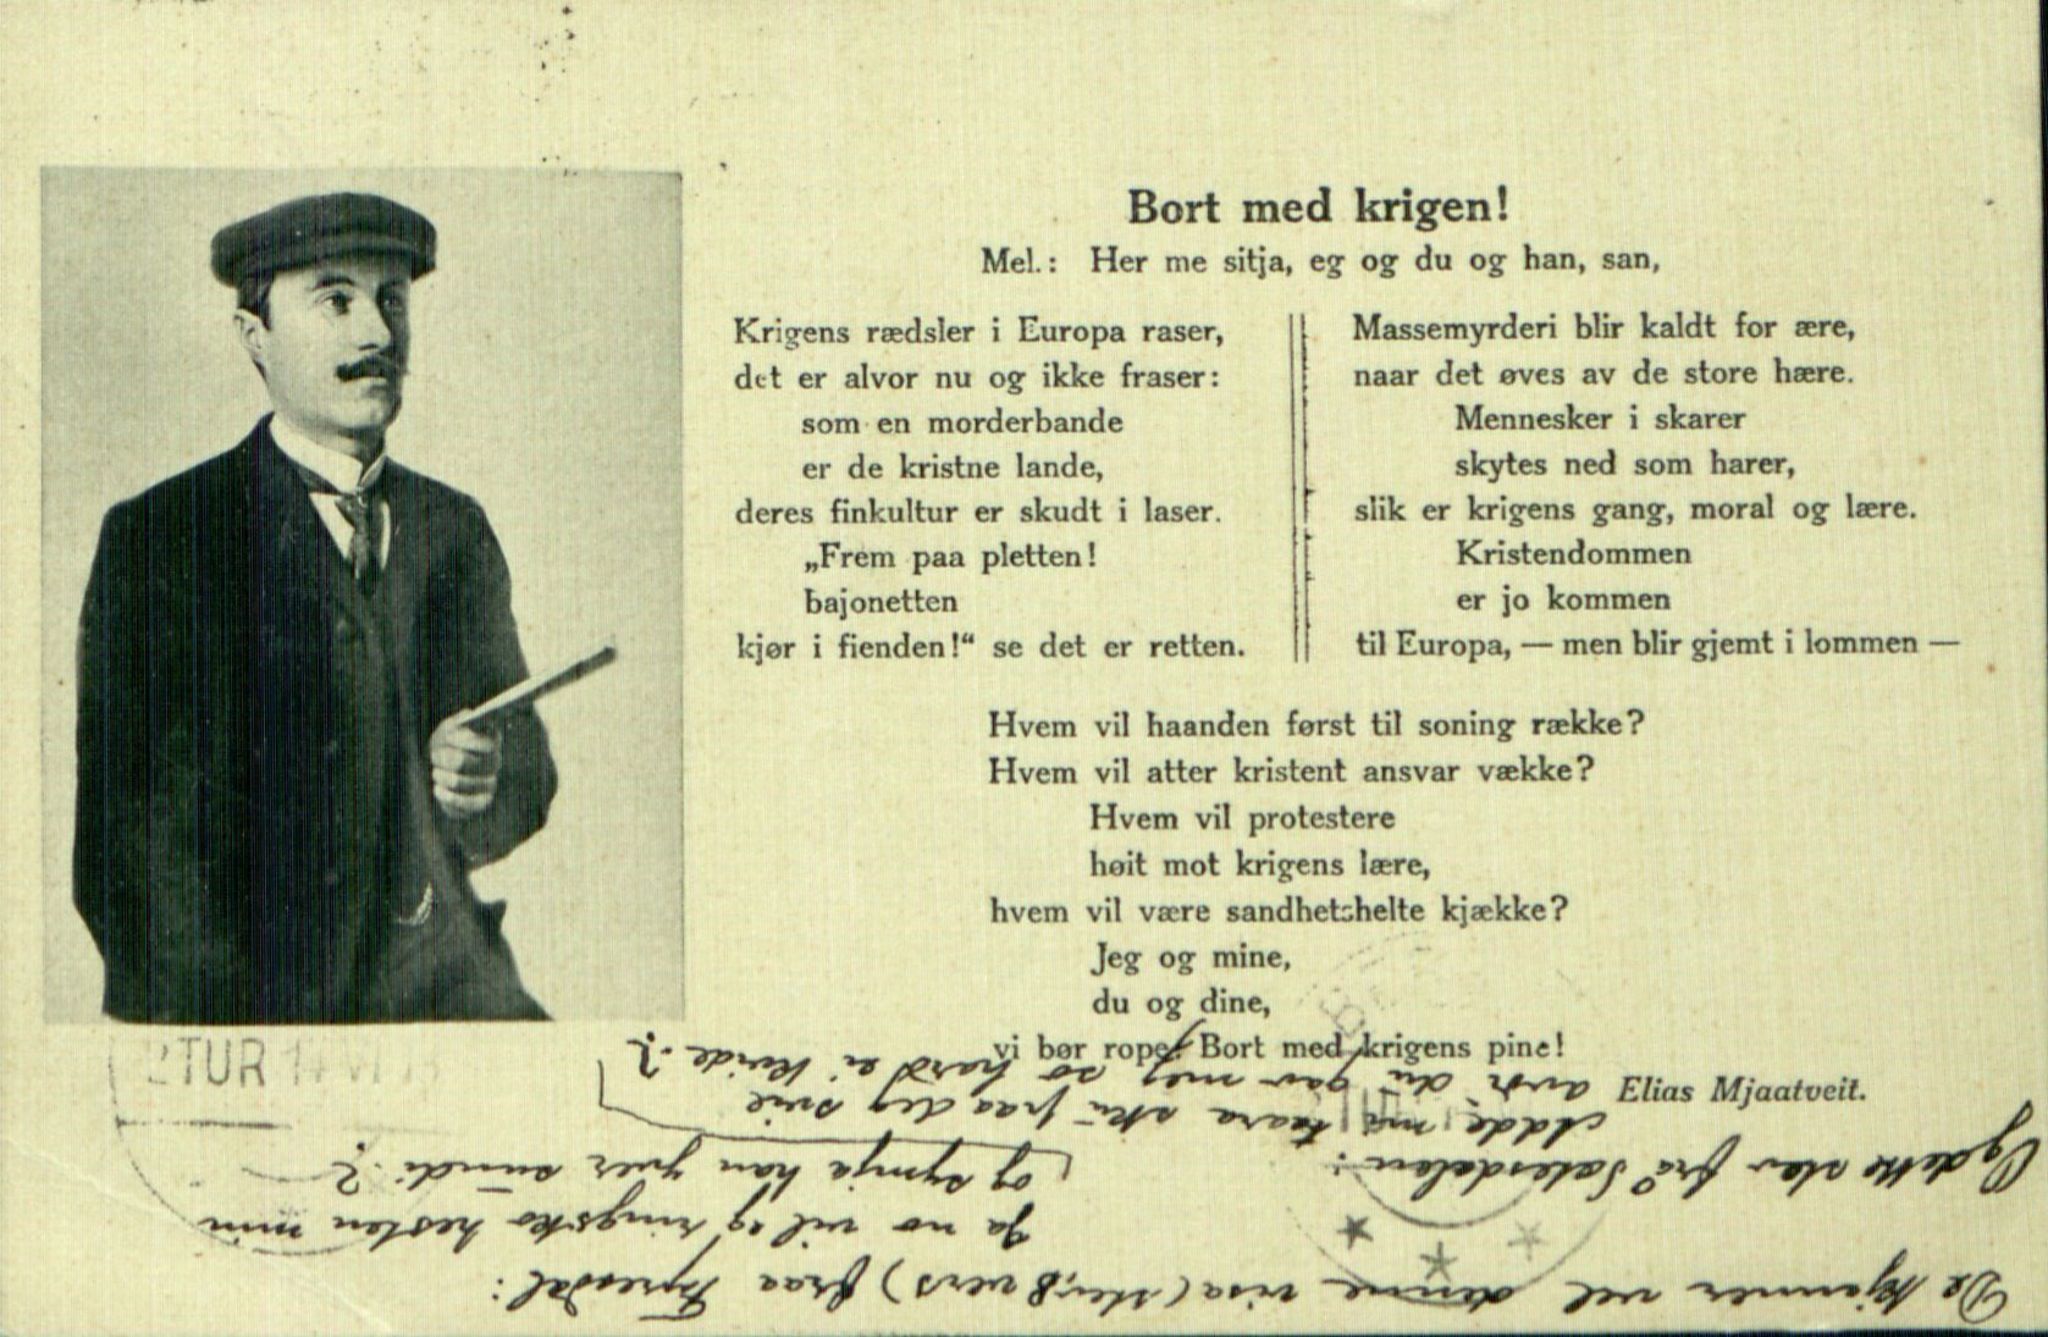 Bort med krigen!
Mel.: Her me sitja, eg og du og han, san,
Krigens rædsler i Europa raser,
det er alvor nu og ikke fraser:
som en morderbande
er de kristne lande,
deres finkultur er skudt i laser.
„Frem paa pletten!
bajonetten
kjør i fienden!“ se det er retten.
Massemyrderi blir kaldt for ære,
naar det øves av de store hære.
Mennesker i skarer
skytes ned som harer,
slik er krigens gang, moral og lære.
Kristendommen
er jo kommen
til Europa, — men blir gjemt i lommen —
Hvem vil haanden først til soning række?
Hvem vil atter kristent ansvar vække?
Hvem vil protestere
høit mot krigens lære,
hvem vil være sandhetshelte kjække?
Jeg og mine,
du og dine,
vi bør rope: Bort med krigens pine!
Elias Mjaatveit.
De kjenner vel denne visa (8 vers) fraa Fyresdal:
Ja no vil eg ringsko hesten min
og symja han yver sundi?
Og dette stev frå Setesdalen:
taara fraa deg
du gav meg so hard ei kvide?
TUR